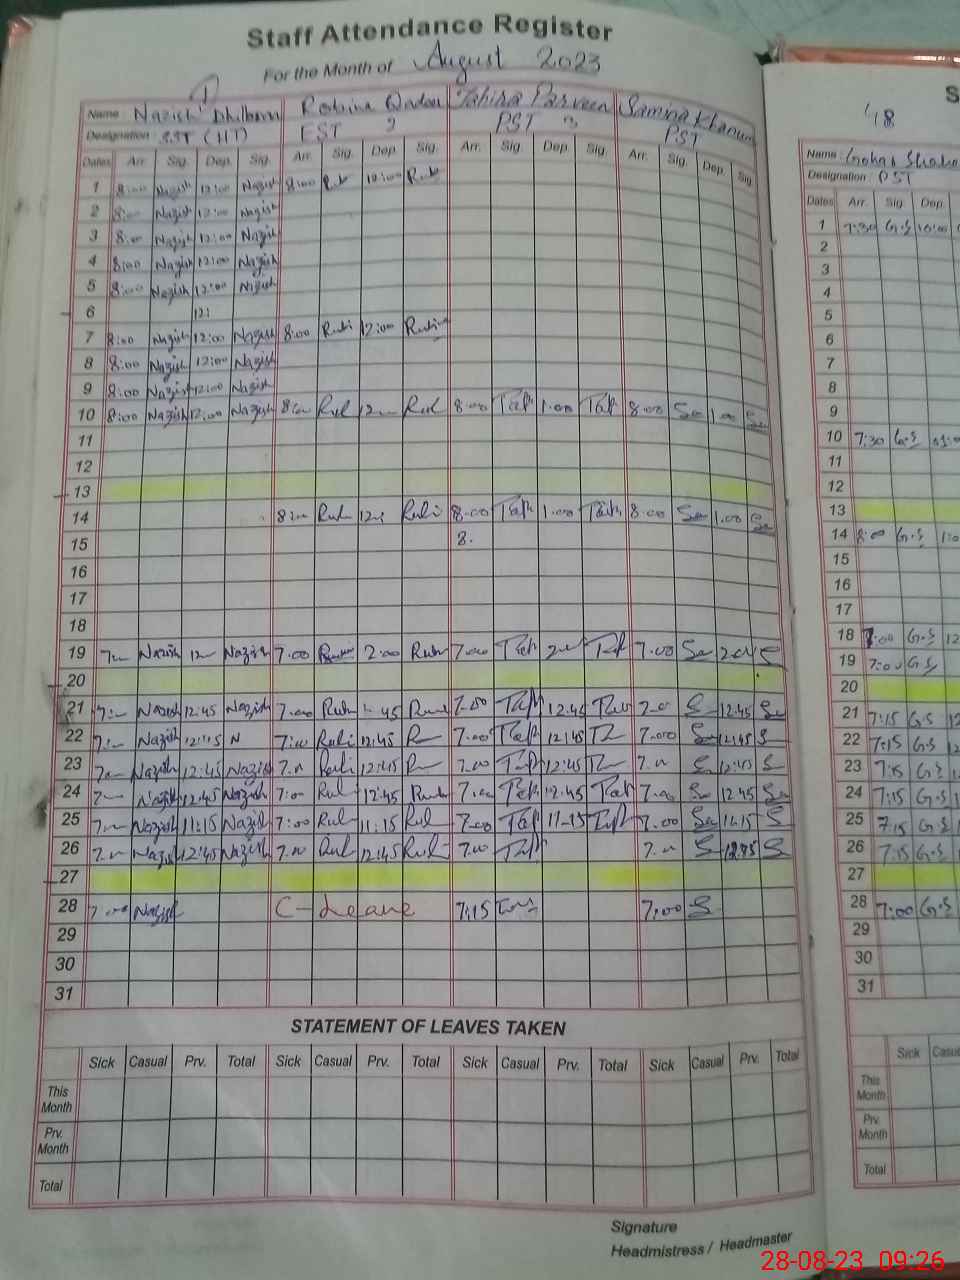 Staff Attendance Register
For the Month of August 2023
1
Name Nazish Robina Tahira Parveen Samina Khanum
Designation : SST (HT) EST 2 PST 3 PST
Dates Arr. Sig. Dep. Sig. Arr. Sig. Dep. Sig. Arr. Sig. Dep. Sig. Arr. Sig. Dep. Sig
1 8:00 Nazish 12:00 Nazish 8:00 Rub 12:00 Rub
2 8:00 Nazish 12:00 Nazish
3 8:00 Nazish 12:00 Nazish
4 8:00 Nazish 12:00 Nazish
5 8:00 Nazish 12:00 Nazish
6 12:
7 8:00 Nazish 12:00 Nazish 8:00 Rubi 12:00 Rubi
8 8:00 Nazish 12:00 Nazish
9 8:00 Nazish 12:00 Nazish
10 8:00 Nazish 12:00 Nazish 8:00 Rub 12:00 Rub 8:00 Tah 1:00 Tah 8:00 Sa 1:00 Sa
11
12
13
14 8:00 Rub Rubi 8:00 Tah 1:00 Tah 8:00 Sa 1.00 Sa
15 8.
16
17
18
19 7:00 Nazish 12:00 Nazish 7:00 2:00 Rub 7:00 Tah 2:00 Tah 7:00 Sa 2:00 S
20
21 7:00 Nazish 12:45 Nazish 7:00 Rub 45 7:00 Tah 12:45 7:00 S 12:45 Sa
22 7:00 Nazish N 7:00 Rubi 12:45 R 7:00 Tah 12:45 7:00 Sa 12:45 S
23 7:00 Nazish 12:45 Nazish 7:00 Rubi 12:45 R 7:00 Tah 12:45 7:00 S 12:45 S
24 7:00 Nazish 12:45 Nazish 7:00 Rub 12:45 Rub 7:00 Tah 12:45 Tah 7:00 Sa 12:45 Sa
25 7:00 Nazish 11:15 Nazish 7:00 Rub 11:15 Rub 7:00 Tah 11-15 Tah 7:00 Sa 11:15 S
26 7:00 Nazish 12:45 Nazish 7:00 Rub 12:45 Rub 7:00 Tah 7:00 S 12:45 S
27
28 7:00 Nazish C-Leave 7:15 7:00 S
29
30
31
STATEMENT OF LEAVES TAKEN
Sick Casual Prv. Total Sick Casual Prv. Total Sick Casual Prv. Total Sick Casual Prv. Total
This
Month
Prv.
Month
Total
Signature
Headmistress / Headmaster
S
Name :
Designation : PST
Dates Arr. Sig. Dep.
1 7:30 G.S 10:00
2
3
4
5
6
7
8
9
10 7:30 G.S 01:0
11
12
13
14 8:00 G.S 1:0
15
16
17
18 7:00 G.S 12
19 7:00 G.S
20
21 7:15 G.S 12
22 7:15 G.S 12
23 7:15 G.S
24 7:15 G.S
25 7:15 G.S
26 7:15 G.S
27
28 7:00 G.S
29
30
31
Sick Casu
This
Month
Prv.
Month
Total
28-08-23 09:26